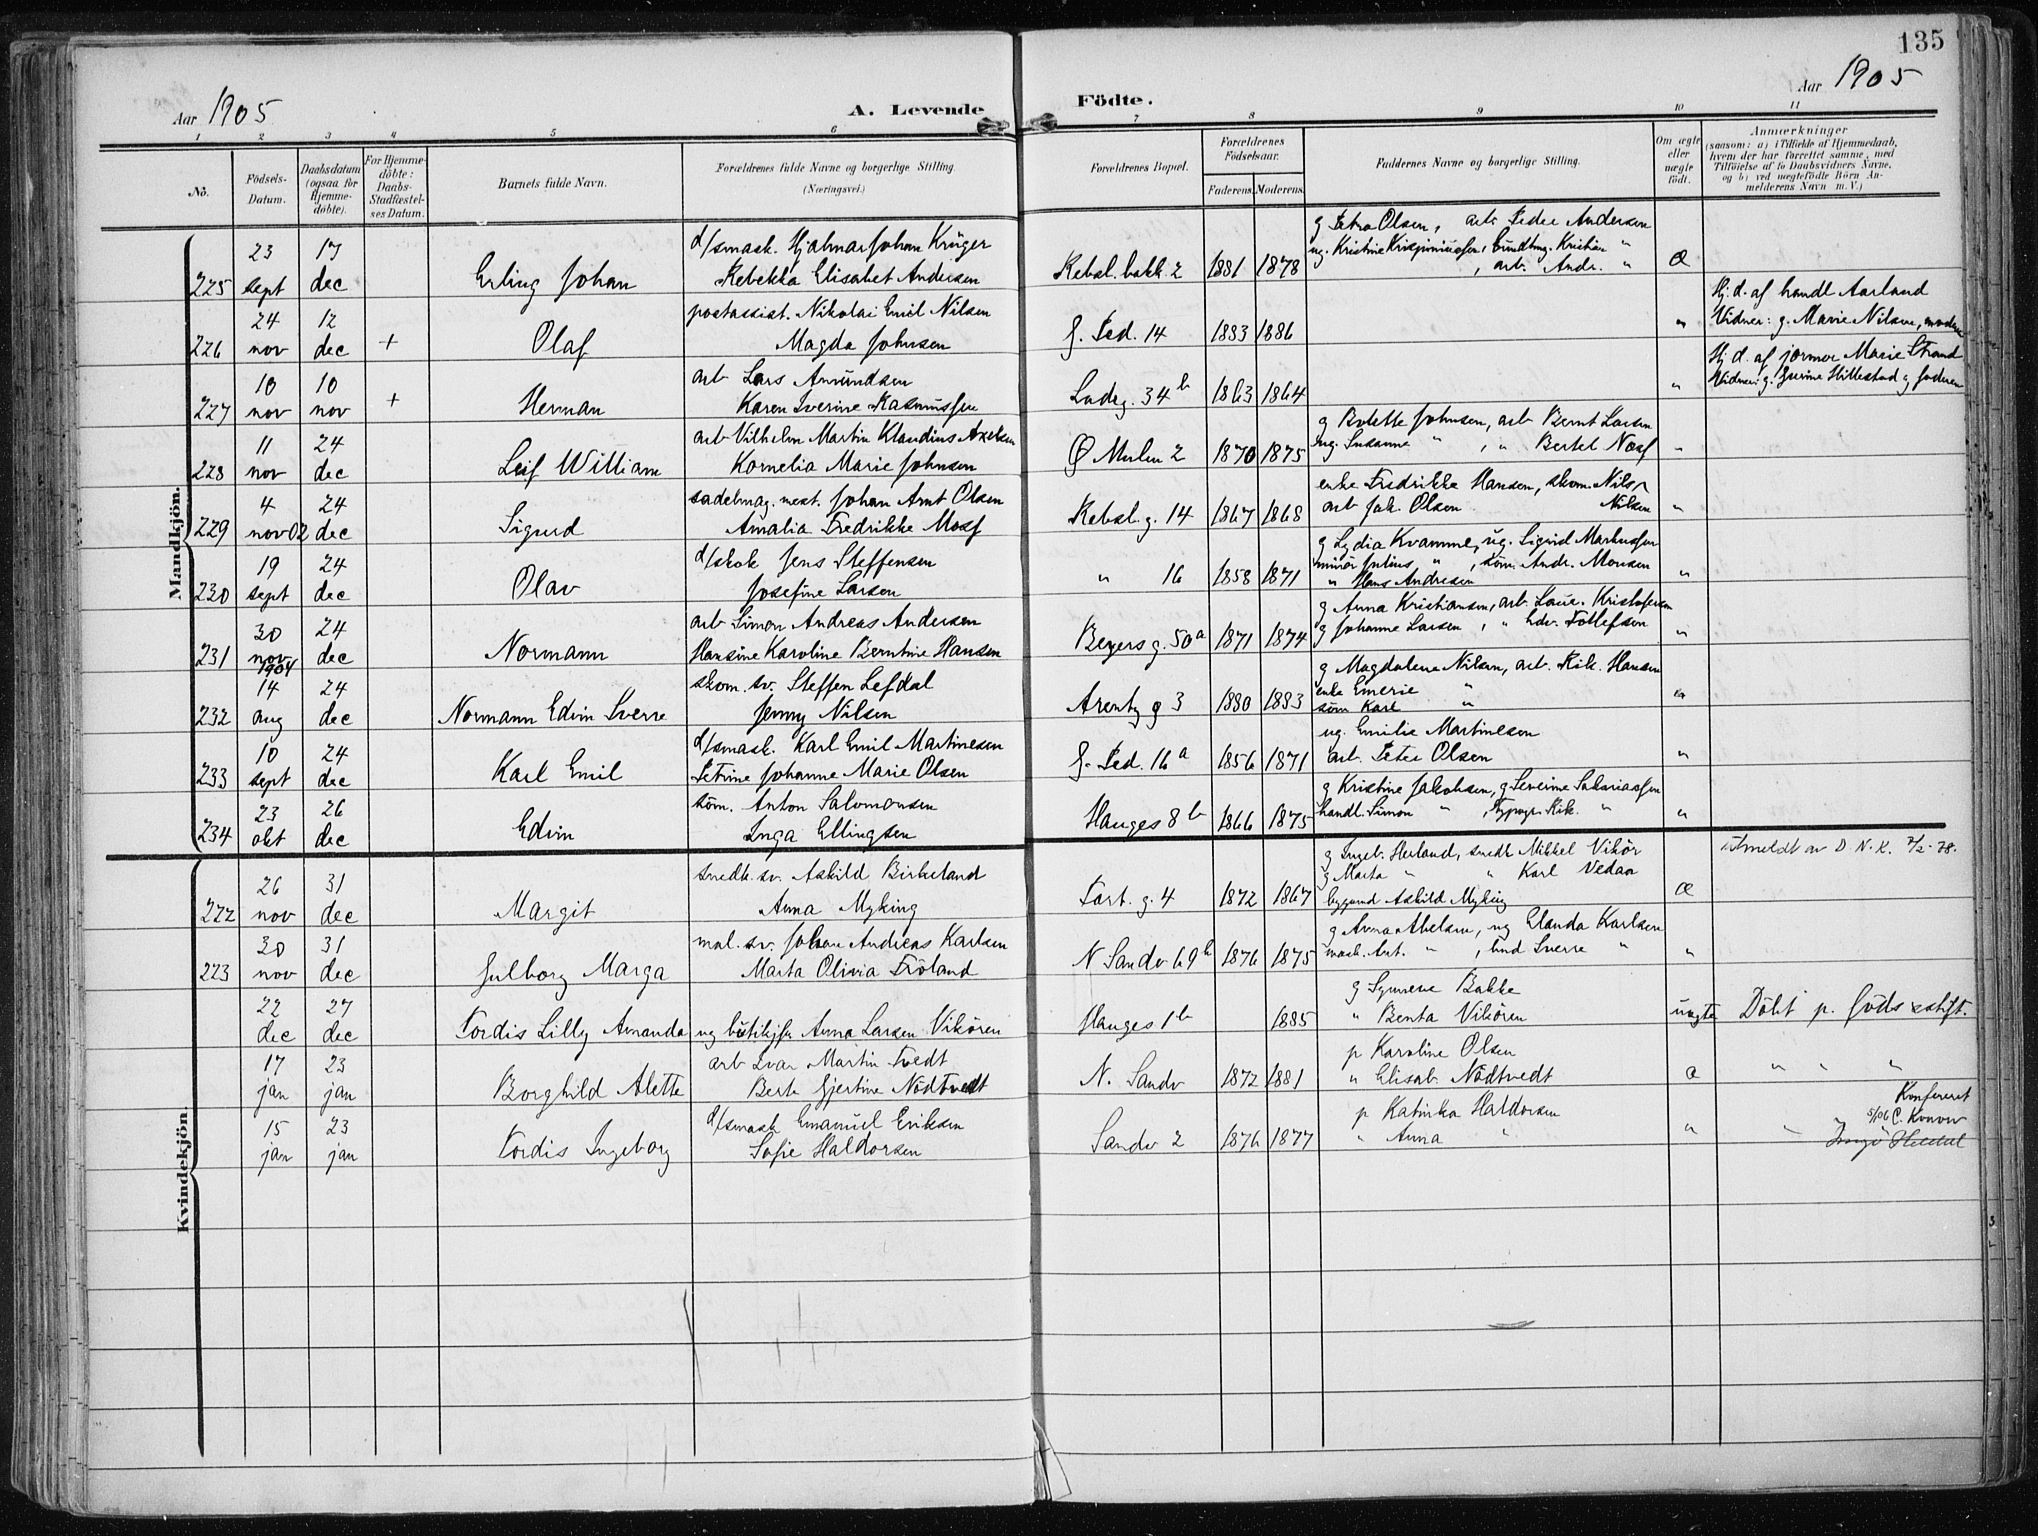 135
Aar 1905
A. Levende Födte.
Aar 1905
1 2 3 4 5 6 7 8 9 10 11
Nö.
Födsels-Datum.
Daabsdatum (ogsaa for Hjemme-döbte).
For Hjemme-döbte: Daabs-Stadfæstel-ses Datum.
Barnets fulde Navn.
Forældrenes fulde Navne og borgerlige Stilling.
(Næringsvei.)
Forældrenes Bopæl.
Forældrenes Födselsaar.
Faderens. Moderens.
Faddernes Navne og borgerlige Stilling.
Om ægte eller uægte födt.
Anmærkninger
(saasom: a) i Tilfælde af Hjemmedaab, hvem der har forrettet samme, med Tilföielse af to Daabsvidners Navne, og b) ved uægtefödte Börn An-melderens Navn m. V.)
Mandkjön.
23 17 d/smask. Hjalmar Johan Krüger g Petra Olsen, arb. Peder Andersen
225 sept dec Erling Johan Rebekka Elisabet Andersen Rebsl. bakk 2 1881 1878 ug. Kristine Krispiniussen, bundtmg. Kristian "
, arb. Andr. " Æ
24 12 postassist. Nikolai Emil Nilsen Hj. d. af handl Aarland
226 nov dec + Olaf Magda Johnsen J. Ped. 14 1883 1886 " Vidner: g. Marie Nilsen,
10 10 arb Lars Amundsen Hj d. af jormor Marie Strand
227 nov nov + Herman Karen Iverine Rasmussen Ladeg. 34 b 1863 1864 " Vidner: g. Hillestad og faderen
11 24 arb Vilhelm Martin Klaudius Axelsen g Bolette Johnsen, arb Bernt Larsen
228 nov dec Leif William Kornelia Marie Johnsen Ø Mulen 2 1870 1875 ug. Susanne " , " Bertel Næss "
4 24 sadelmag. mest. Johan Arnt Olsen enke Fredrikke Hansen, skom. Nils
229 nov 02 dec Sigurd Amalia Fredrikke Moss Rebsl. g. 14 1867 1868 arb Jak. Olsen Nilsen "
19 24 d/skok Jens Steffensen g Lydia Kvamme, ug. Sigrid Markussen
230 sept dec Olav Josefine Larsen " 16 1858 1871 minör Julius " , söm. Andr. Monsen "
" Hans Andresen
30 24 arb Simon Andreas Andersen g Anna Kristiansen, arb. Laur. Kristofersen
231 nov 1904 dec Normann Hansine Karoline Berntine Hansen Beyers g. 50 a 1871 1874 g Johanne Larsen, " Edv. Tollefsen "
14 24 skom. sv. Steffen Lefdal g Magdalene Nilsen, arb. Rik. Hansen
232 aug dec Normann Edvin Sverre Jenny Nilsen Arentz g 3 1880 1883 enke Emerie "
söm Karl " "
10 24 d/smask. Karl Emil Martinesen ug. Emilie Martinesen
233 sept dec Karl Emil Petrine Johanne Marie Olsen J. Ped. 16 a 1856 1871 arb. Peter Olsen "
23 26 söm. Anton Salomonsen g Kristine Jakobsen, g Severine Sakariassen
234 okt dec Edvin Inga Ellingsen Hauges 8 b 1866 1875 handl. Simon " , Typogr. Rik. " "
Kvindekjön.
26 31 snedk. sv. Askild Birkeland g Ingeb. Herland, snedk Mikkel Vikör Utmeldt av D. N. K. 7/2-78.
222 nov dec Margit Anna Myking Tort. g. 4 1872 1867 g Marta " " Karl Vedaa Æ
Askild Myking
30 31 mal. sv. Johan Andreas Karlsen g Anna Abelsen, ug Elanda Karlsen
223 nov dec Gulborg Marga Marta Olivia Fröland N Sandv 69 b 1876 1875 mask. Ant. " , bud Sverre " "
22 27 g Synneve Bakke
dec dec Tordis Lilly Amanda ug butikjfr Anna Larsen Vikören Hauges 1 b 1885 " Benta Vikören uægte Döbt p. föds.stift.
17 23 arb Ivar Martin Tvedt p Karoline Olsen
jan jan Borghild Alette Berta Gjertine Nödtvedt N. Sandv 1872 1881 " Elisab. Nödtvedt Æ " " "
15 23 d/smask Emanuel Eriksen p Katinka Haldorsen Konfereret
jan jan Tordis Ingeborg Sofie Haldorsen Sandv 2 1876 1877 " Anna " " " 5/06 C. Konow